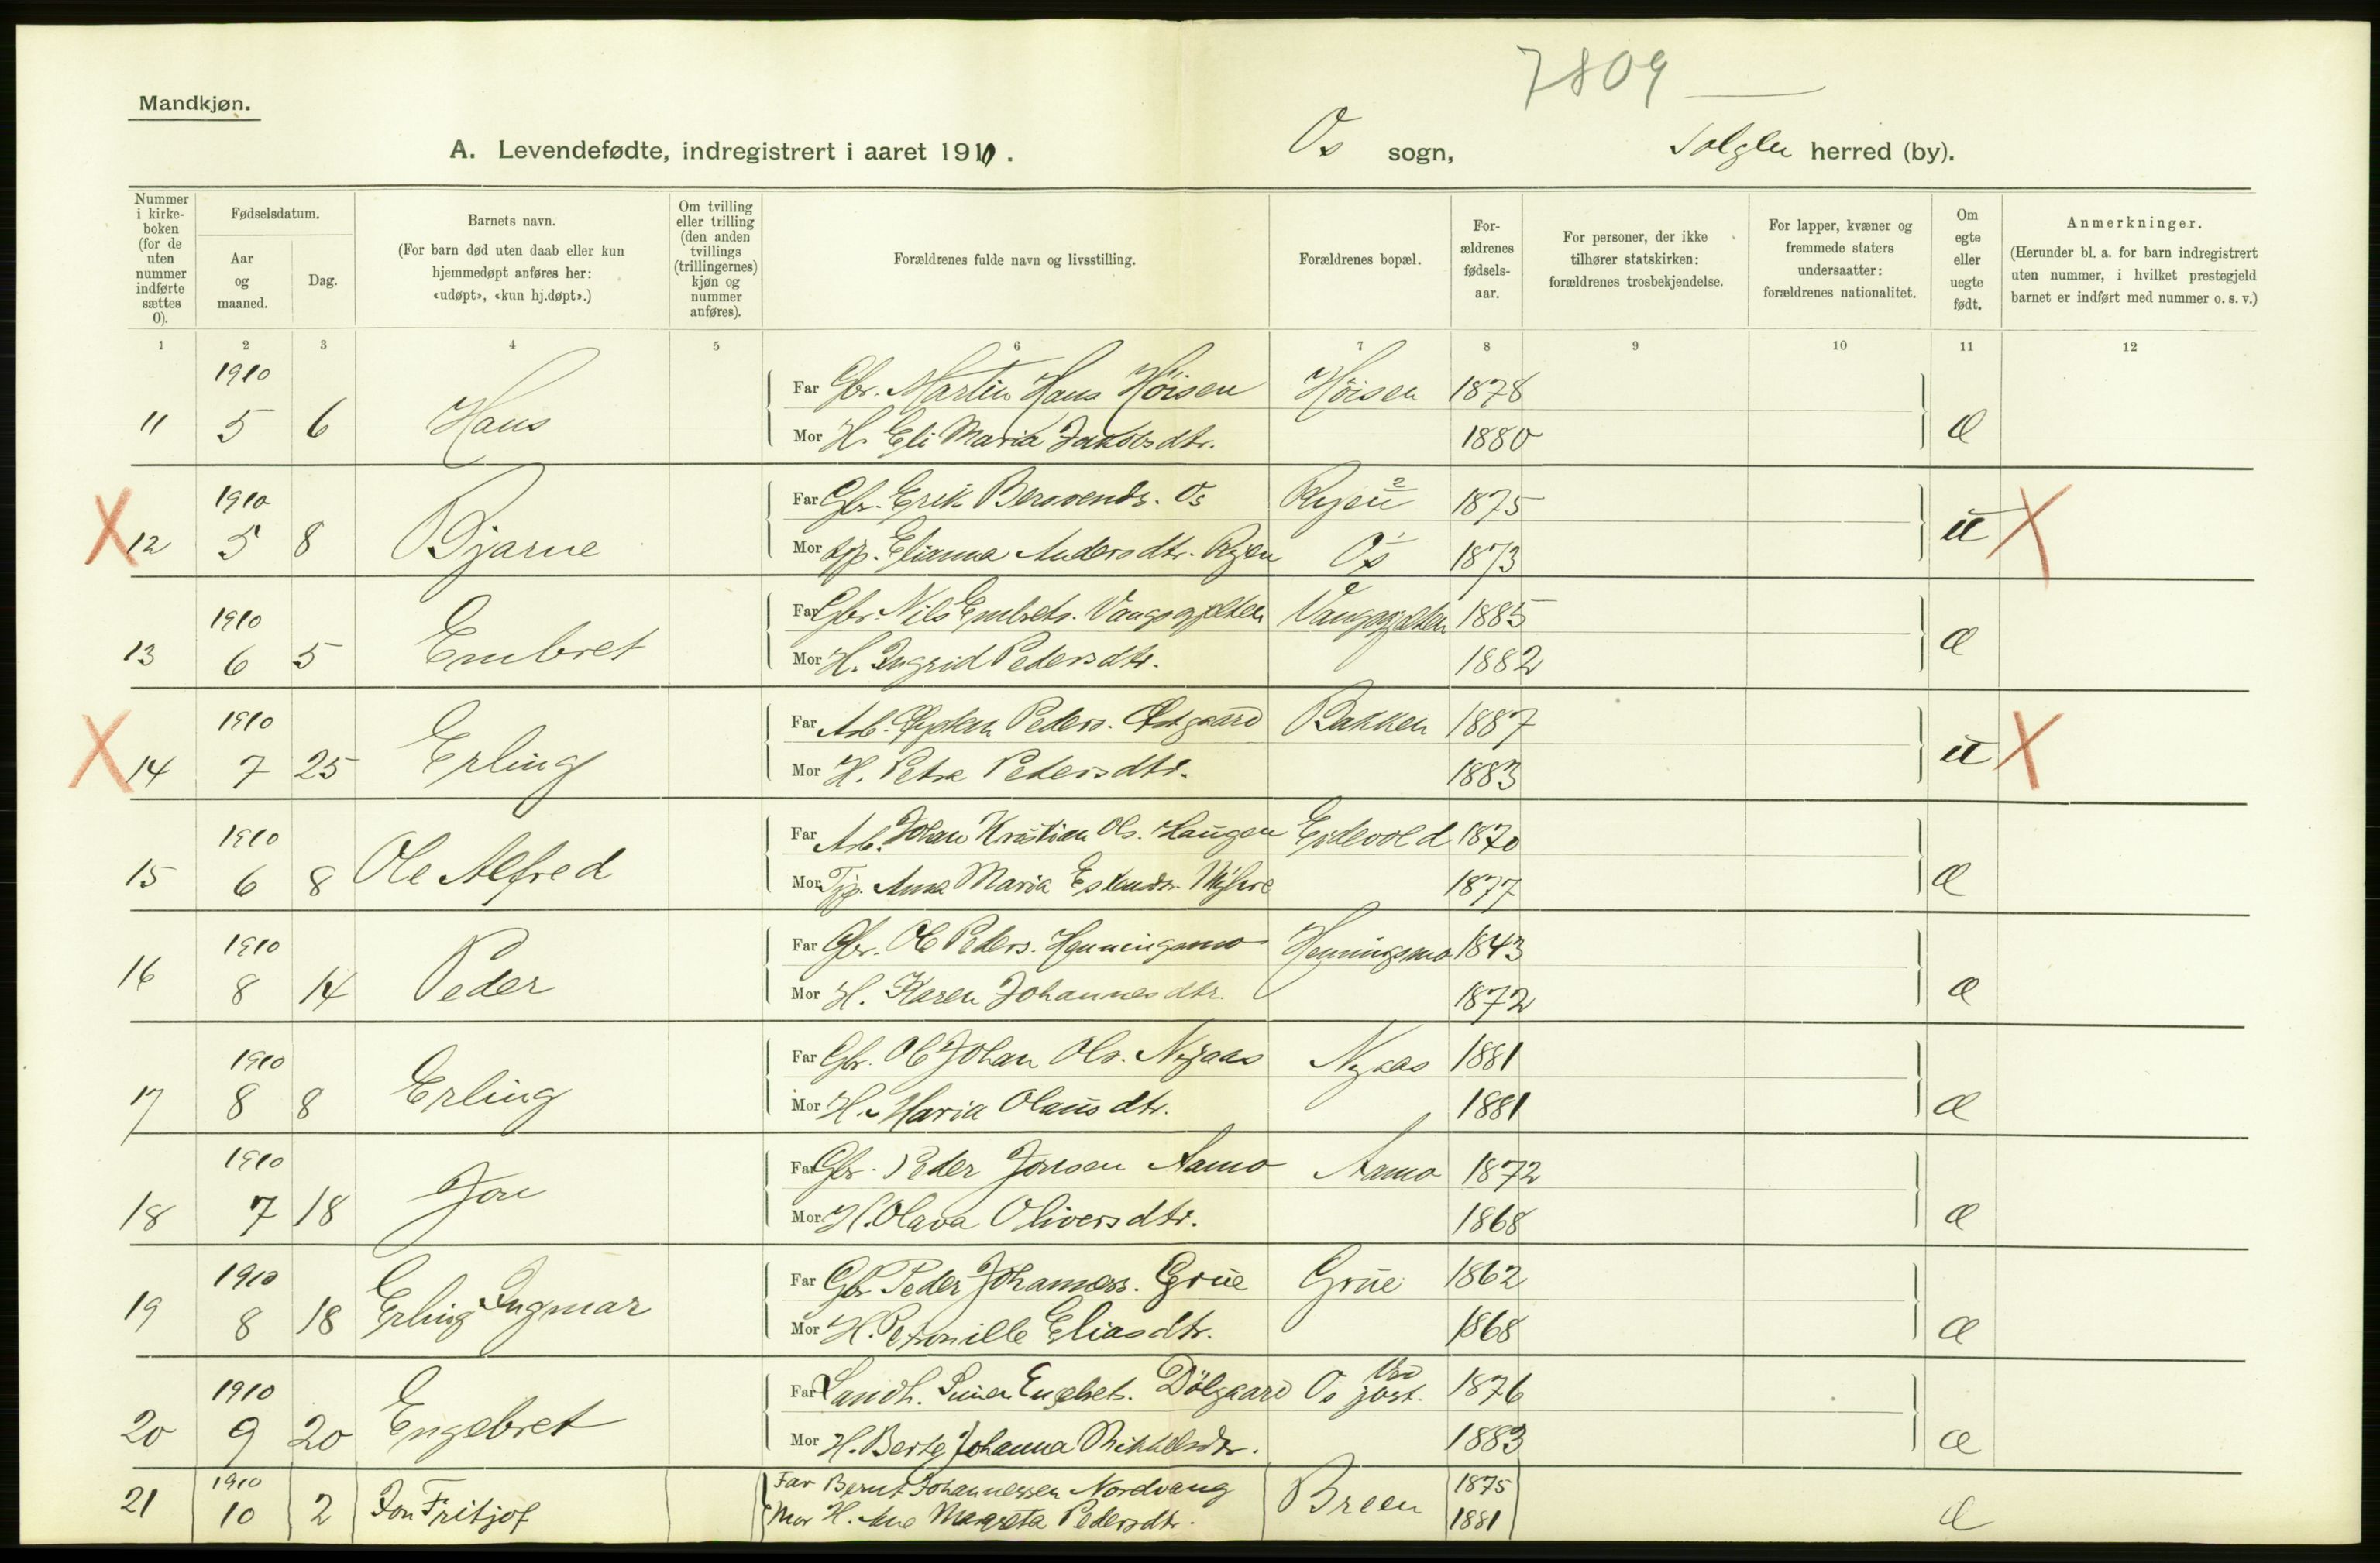 7809
Mandkjøn.
A. Levendefødte, indregistrert i aaret 1910. Os sogn, Tolgen herred (by).
Nummer i kirke-boken (for de uten nummer indførte sættes 0).
Fødselsdatum.
Aar og maaned.
Dag.
Barnets navn.
(For barn død uten daab eller kun hjemmedøpt anføres her: «udøpt», «kun hj.døpt».)
Om tvilling eller trilling (den anden tvillings (trillingernes) kjøn og nummer anføres).
Forældrenes fulde navn og livsstilling.
Forældrenes bopæl.
For-ældrenes fødsels-aar.
For personer, der ikke tilhører statskirken: forældrenes trosbekjendelse.
For lapper, kvæner og fremmede staters undersaatter: forældrenes nationalitet.
Om egte eller uegte født.
Anmerkninger.
(Herunder bl. a. for barn indregistrert uten nummer, i hvilket prestegjeld barnet er indført med nummer o. s. v.)
1 2 3 4 5 6 7 8 9 10 11 12
1910 Far Gbr. Martin Hans Höisen Höisen 1878
11 5 6 Hans Mor H. Eli Maria Jakobsdtr. 1880 Æ
1910 Far Gbr. Erik Bersvends. Os Ryen 2 1875
X 12 5 8 Bjarne Mor tjp. Elianna Andersdtr. Ryen Os 1 1873 u X
1910 Far Gbr. Nils Embrets. Vangsgjelten Vangsgjelten 1885
13 6 5 Embret Mor H. Ingrid Pedersdtr. 1882 Æ
1910 Far Arb. Peders. Østgaard Bakken 1887
X 14 7 25 Erling Mor H. Petra Pedersdtr. 1883 u X
1910 Far Arb. Johan Kristian Ols. Haugen Eidsvold 1870
15 6 8 Ole Alfred Mor Tjp. Anna Maria Eskendr. Myhre 1877 Æ
1910 Far Gbr. Ole Peders. Henningsmo Henningsmo 1843
16 8 14 Peder Mor H. Karen Johannesdtr. 1872 Æ
1910 Far Gbr. Ole Johan Ols. Nyaas Nyaas 1881
17 8 8 Erling Mor H. Maria Olausdtr. 1881 Æ
1910 Far Gbr. Peder Jonsen Aamo Aamo 1872
18 7 18 Jon Mor H. Olava Oliversdtr. 1868 Æ
1910 Far Gbr Peder Johanness. Grue Grue 1862
19 8 18 Erling Ingmar Mor H. Petronille Eliasdtr. 1868 Æ
1910 Far Landh. Engebrets. Dölgaard Os 1876
20 9 20 Engebret Mor H. Berte Johanna Mikkelsdtr. 1883 Æ
1910 Far Bernt Johannessen Nordvang Breen 1875
21 10 2 Jon Fritjof Mor H. Ane Margreta Pedersdtr. 1881 Æ